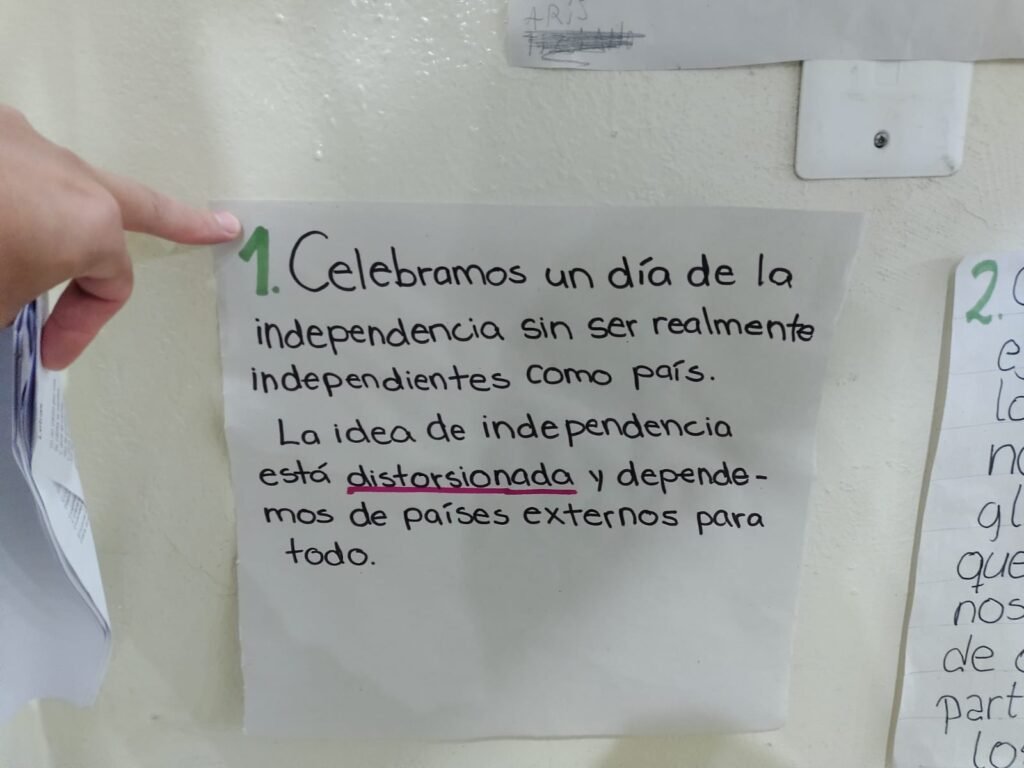 1. Celebramos un día de la
independencia sin ser realmente
independientes como país.
La idea de independencia
está distorsionada y depende-
mos de países externos para
todo.
2.
que
nos
de